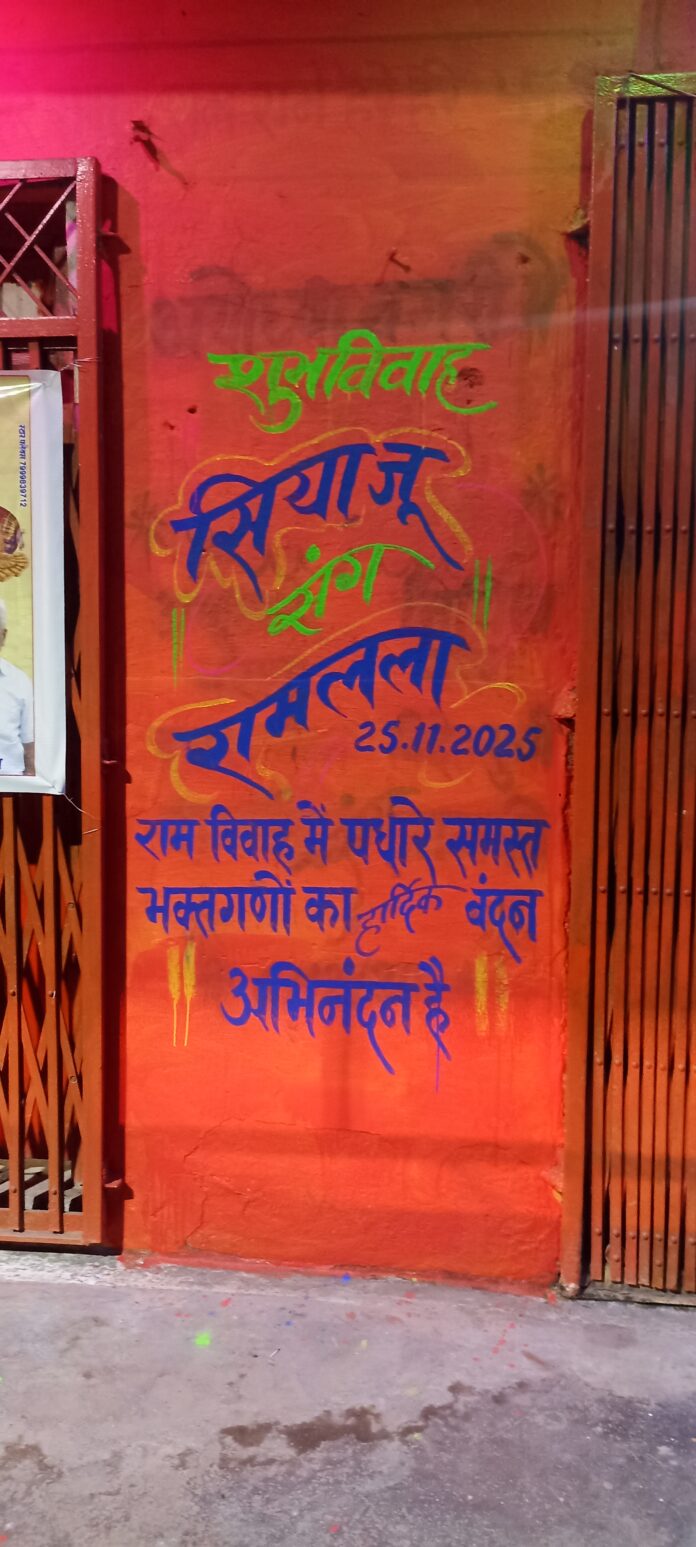 शुभविवाह
सियाजू
संग
रामलला
25.11.2025
राम विवाह में पधारे समस्त
भक्तगणों का हार्दिक वंदन
अभिनंदन है
7999839712